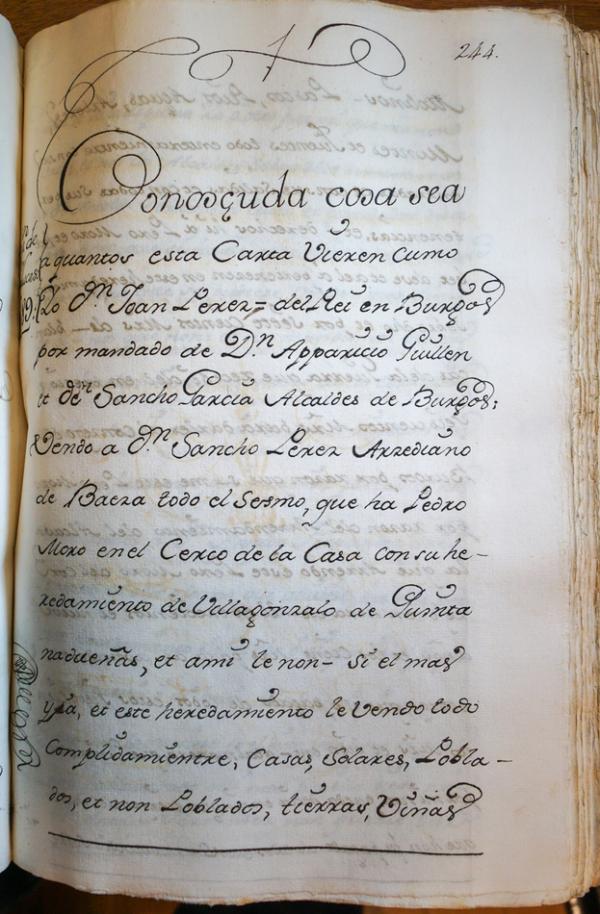 244.
Conosçuda cosa sea
a quantos esta Carta Vieren cumo
Yo D.ⁿ Joan Perez = del Rei en Burgos
por mandado de D.ⁿ Apparicio Guillen
et de D.ⁿ Sancho Garcia Alcaldes de Burgos;
Vendo a D.ⁿ Sancho Perez Arzediano
de Baeza todo el Sesmo, que ha Pedro
Moro en el Cerco de la Casa con su he-
redamiento de Villagonzalo de Quinta
nadueñas, et ami le non- si el mas
et este heredamiento le Vendo todo
Complidamientre, Casas, Solares, Pobla-
dos, et non Poblados, tierras, Viñas